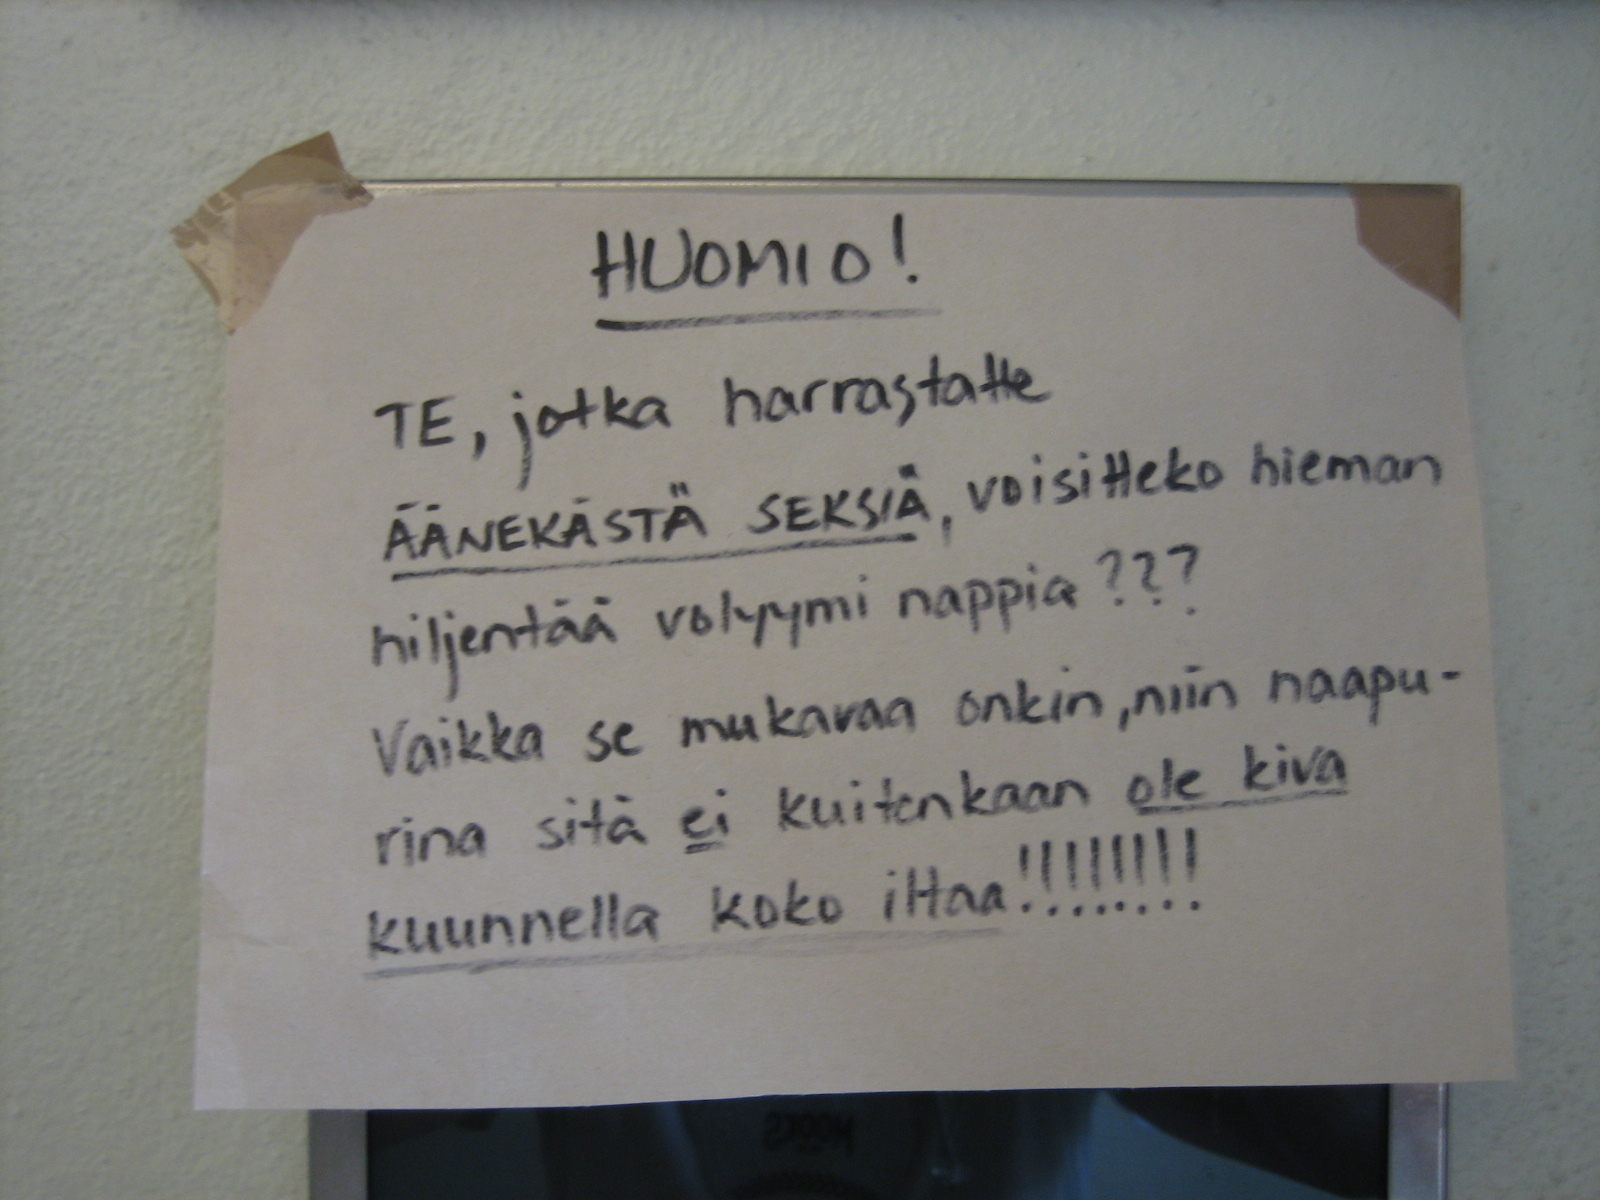 HUOMIO!
TE, jotka harrastatte
ÄÄNEKÄSTÄ SEKSIÄ, voisitteko hieman
hiljentää volyymi nappia???
Vaikka se mukavaa onkin, niin naapu-
rina sitä ei kuitenkaan ole kiva
kuunnella koko iltaa!!!!!!!!